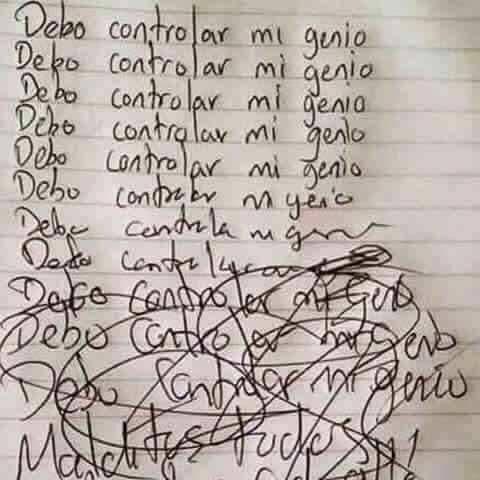 Debo controlar mi genio
Debo controlar mi genio
Debo controlar mi genio
Debo controlar mi genio
Debo controlar mi genio
Debo controlar mi genio
Debo
Debo
Debo controlar mi genio
Debo controlar mi genio
Debo controlar mi genio
Malditos todos